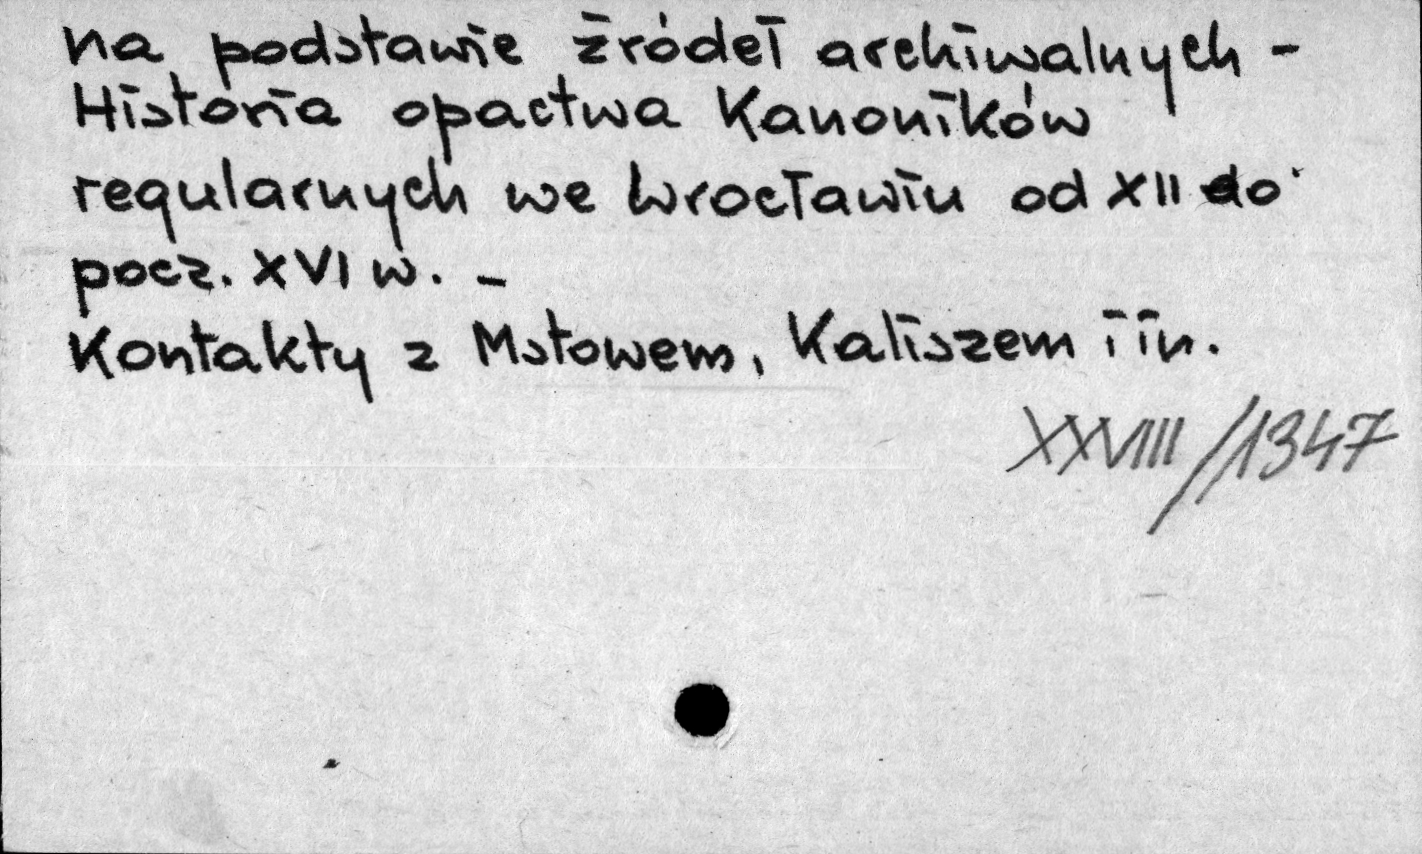 na podstawie źródeł archiwalnych -
Historia opactwa Kanoników
regularnych we Wrocławiu od XII do
pocz. XVI w. -
Kontakty z Mstowem, Kaliszem i in.
XXVIII/1347